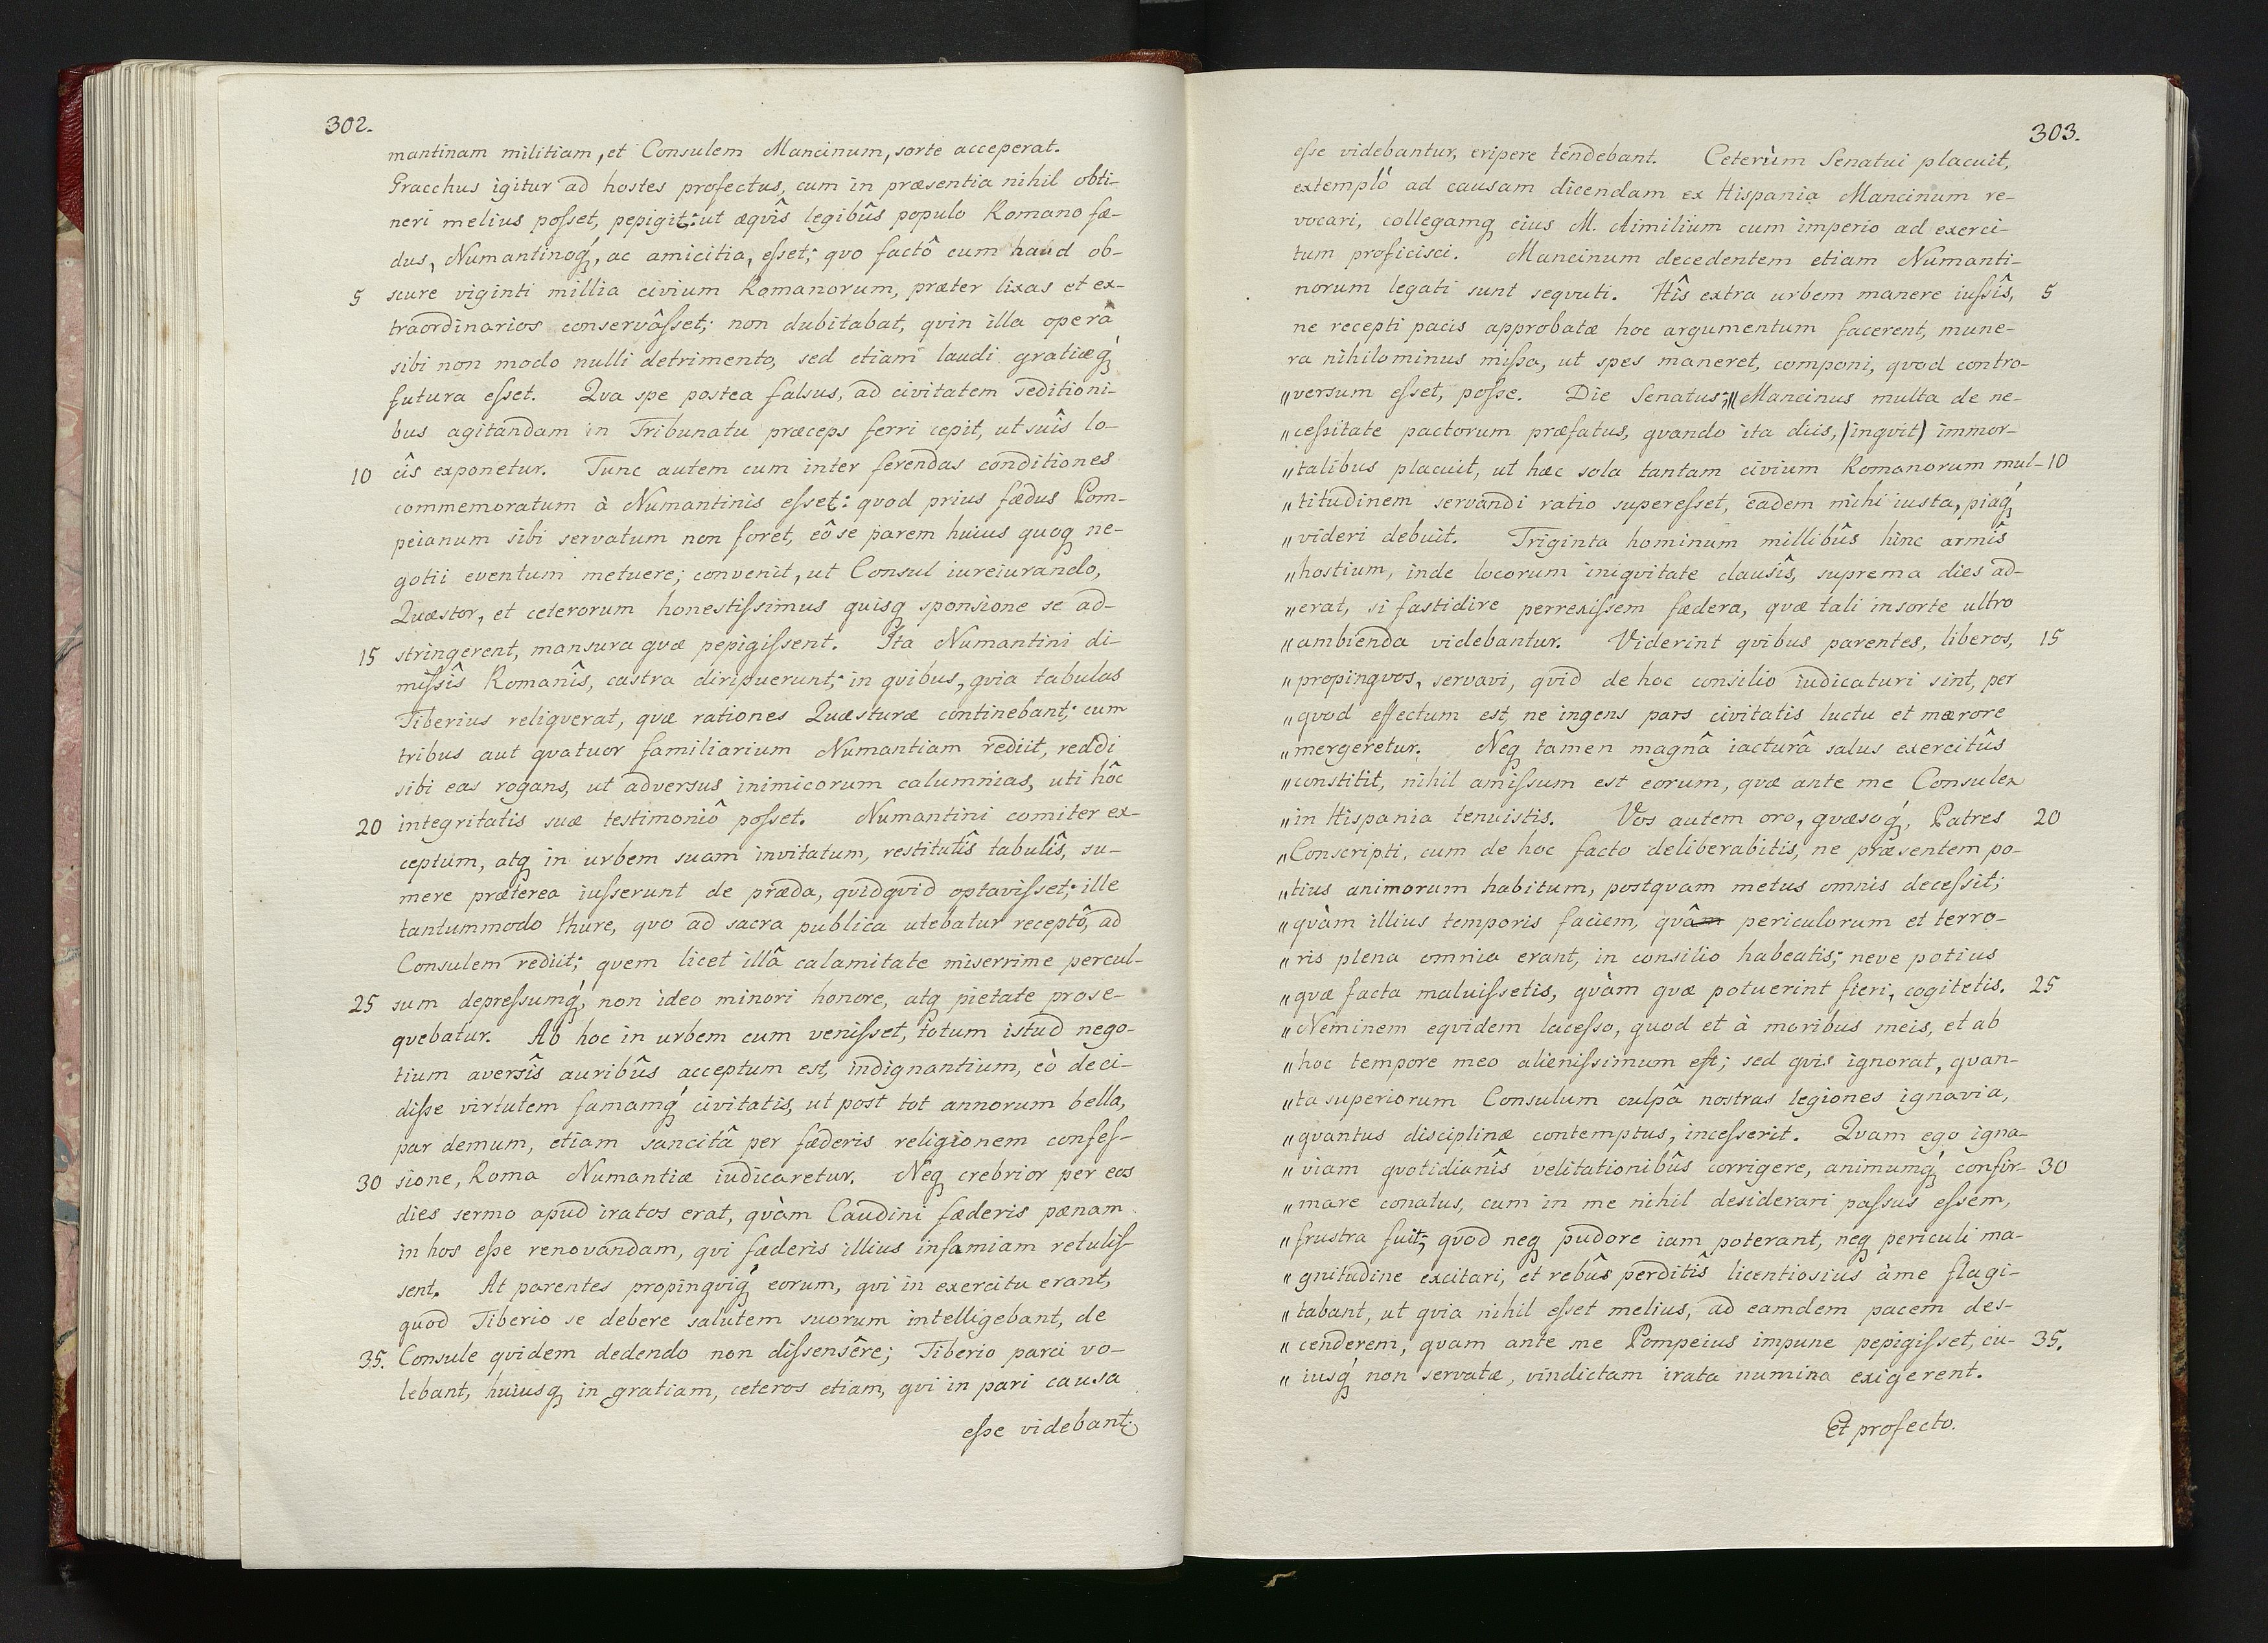 302.
mantinam militiam, et Consulem Mancinum, sorte acceperat.
Gracchus igitur ad hostes profectus, cum in præsentia nihil obti-
neri melius posset, pepigit: ut æqvîs legibûs populo Romano fæ-
dus, Numantinoq́, ac amicitia, esset; qvo factô cum haud ob-
5 scure viginti millia civium Romanorum, præter lixas et ex-
traordinarios conservâsset; non dubitabat, qvin illa operâ
sibi non modo nulli detrimento, sed etiam laudi gratiæq́
futura esset. Qva spe postea falsus, ad civitatem seditioni-
bus agitandam in Tribunatu præceps ferri cepit, ut suîs lo-
10 cîs exponetur. Tunc autem cum inter ferendas conditiones
commemoratum à Numantinis esset: qvod prius fædus Pom-
peianum sibi servatum non foret, eô se parem huius quoq ne-
gotii eventum metuere; convenit, ut Consul iureiurando,
Quæstor, et ceterorum honestissimus quisq sponsione se ad-
15 stringerent, mansura qvæ pepigissent. Ita Numantini di-
missîs Romanîs, castra diripuerunt; in qvibus, qvia tabulas
Tiberius reliqverat, qvæ rationes Quæsturæ continebant; cum
tribus aut qvatuor familiarium Numantiam rediit, reddi
sibi eas rogans, ut adversus inimicorum calumnias, uti hôc
20 integritatis suæ testimoniô posset. Numantini comiter ex-
ceptum, atq in urbem suam invitatum, restitutîs tabulîs, su-
mere præterea iusserunt de præda, qvidqvid optavisset; ille
tantummodo thure, qvo ad sacra publica utebatur receptô, ad
Consulem rediit; qvem licet illâ calamitate miserrime percul-
25 sum depressumq́, non ideo minori honore, atq pietate prose-
qvebatur. Ab hoc in urbem cum venisset, totum istud nego-
tium aversîs auribûs acceptum est, indignantium, eò deci-
disse virtutem famamq́ civitatis, ut post tot annorum bella,
par demum, etiam sancitâ per fæderis religionem confes-
30 sione, Roma Numantiæ iudicaretur. Neq crebrior per eos
dies sermo apud iratos erat, qvàm Caudini fæderis pænam
in hos esse renovandam, qvi fæderis illius infamiam retulis-
sent. At parentes propinqviq́ eorum, qvi in exercitu erant,
quod Tiberio se debere salutem suorum intelligebant, de
35. Consule qvidem dedendo non dissensêre; Tiberio parci vo-
lebant, huiusq in gratiam, ceteros etiam, qvi in pari causa
esse videbant.
303.
esse videbantur, eripere tendebant. Ceterùm Senatui placuit,
extemplô ad causam dicendam ex Hispania Mancinum re-
vocari, collegamq eius M. Aimilium cum imperio ad exerci-
tum proficisci. Mancinum decedentem etiam Numanti-
norum legati sunt seqvuti. Hîs extra urbem manere iussîs, 5
ne recepti pacis approbatæ hoc argumentum facerent, mune-
ra nihilominus missa, ut spes maneret, componi, qvod contro-
„versum esset, posse. Die Senatus; „Mancinus multa de ne-
„cessitate pactorum præfatus, qvando ita diis, (inqvit) immor-
„talibus placuit, ut hæc sola tantam civium Romanorum mul- 10
„titudinem servandi ratio superesset, eadem mihi iusta, piaq́
„videri debuit. Triginta hominum millibûs hinc armîs
„hostium, inde locorum iniqvitate clausîs, suprema dies ad-
„erat, si fastidire perrexissem fædera, qvæ tali insorte ultro
„ambienda videbantur. Viderint qvibus parentes, liberos, 15
„propinqvos, servavi, qvid de hoc consilio iudicaturi sint, per
„qvod effectum est, ne ingens pars civitatis luctu et mærore
„mergeretur. Neq tamen magnâ iacturâ salus exercitûs
„constitit, nihil amissum est eorum, qvæ ante me Consulex
„in Hispania tenuistis. Vos autem oro, qvæsoq́, Patres 20
„Conscripti, cum de hoc facto deliberabitis, ne præsentem po-
„tius animorum habitum, postqvam metus omnis decessit;
„qvàm illius temporis faciem, qvâm periculorum et terro-
„ris plena omnia erant, in consilio habeatis; neve potius
„qvæ facta maluissetis, qvàm qvæ potuerint fieri, cogitetis. 25
„Neminem eqvidem lacesso, quod et à moribus meis, et ab
„hoc tempore meo alienissimum est; sed qvis ignorat, qvan-
„ta superiorum Consulum culpâ nostras legiones ignavia,
„qvantus disciplinæ contemptus, incesserit. Qvam ego igna-
„viam qvotidianîs velitationibûs corrigere, animumq́ confir- 30
„mare conatus, cum in me nihil desiderari passus essem,
„frustra fuit; qvod neq pudore iam poterant, neq periculi ma-
„gnitudine excitari, et rebûs perditîs licentiosius àme flagi-
„tabant, ut qvia nihil esset melius, ad eamdem pacem des-
„cenderem, qvam ante me Pompeius impune pepigisset, cu- 35.
„iusq́ non servatæ, vindictam irata numina exigerent.
Et profecto.